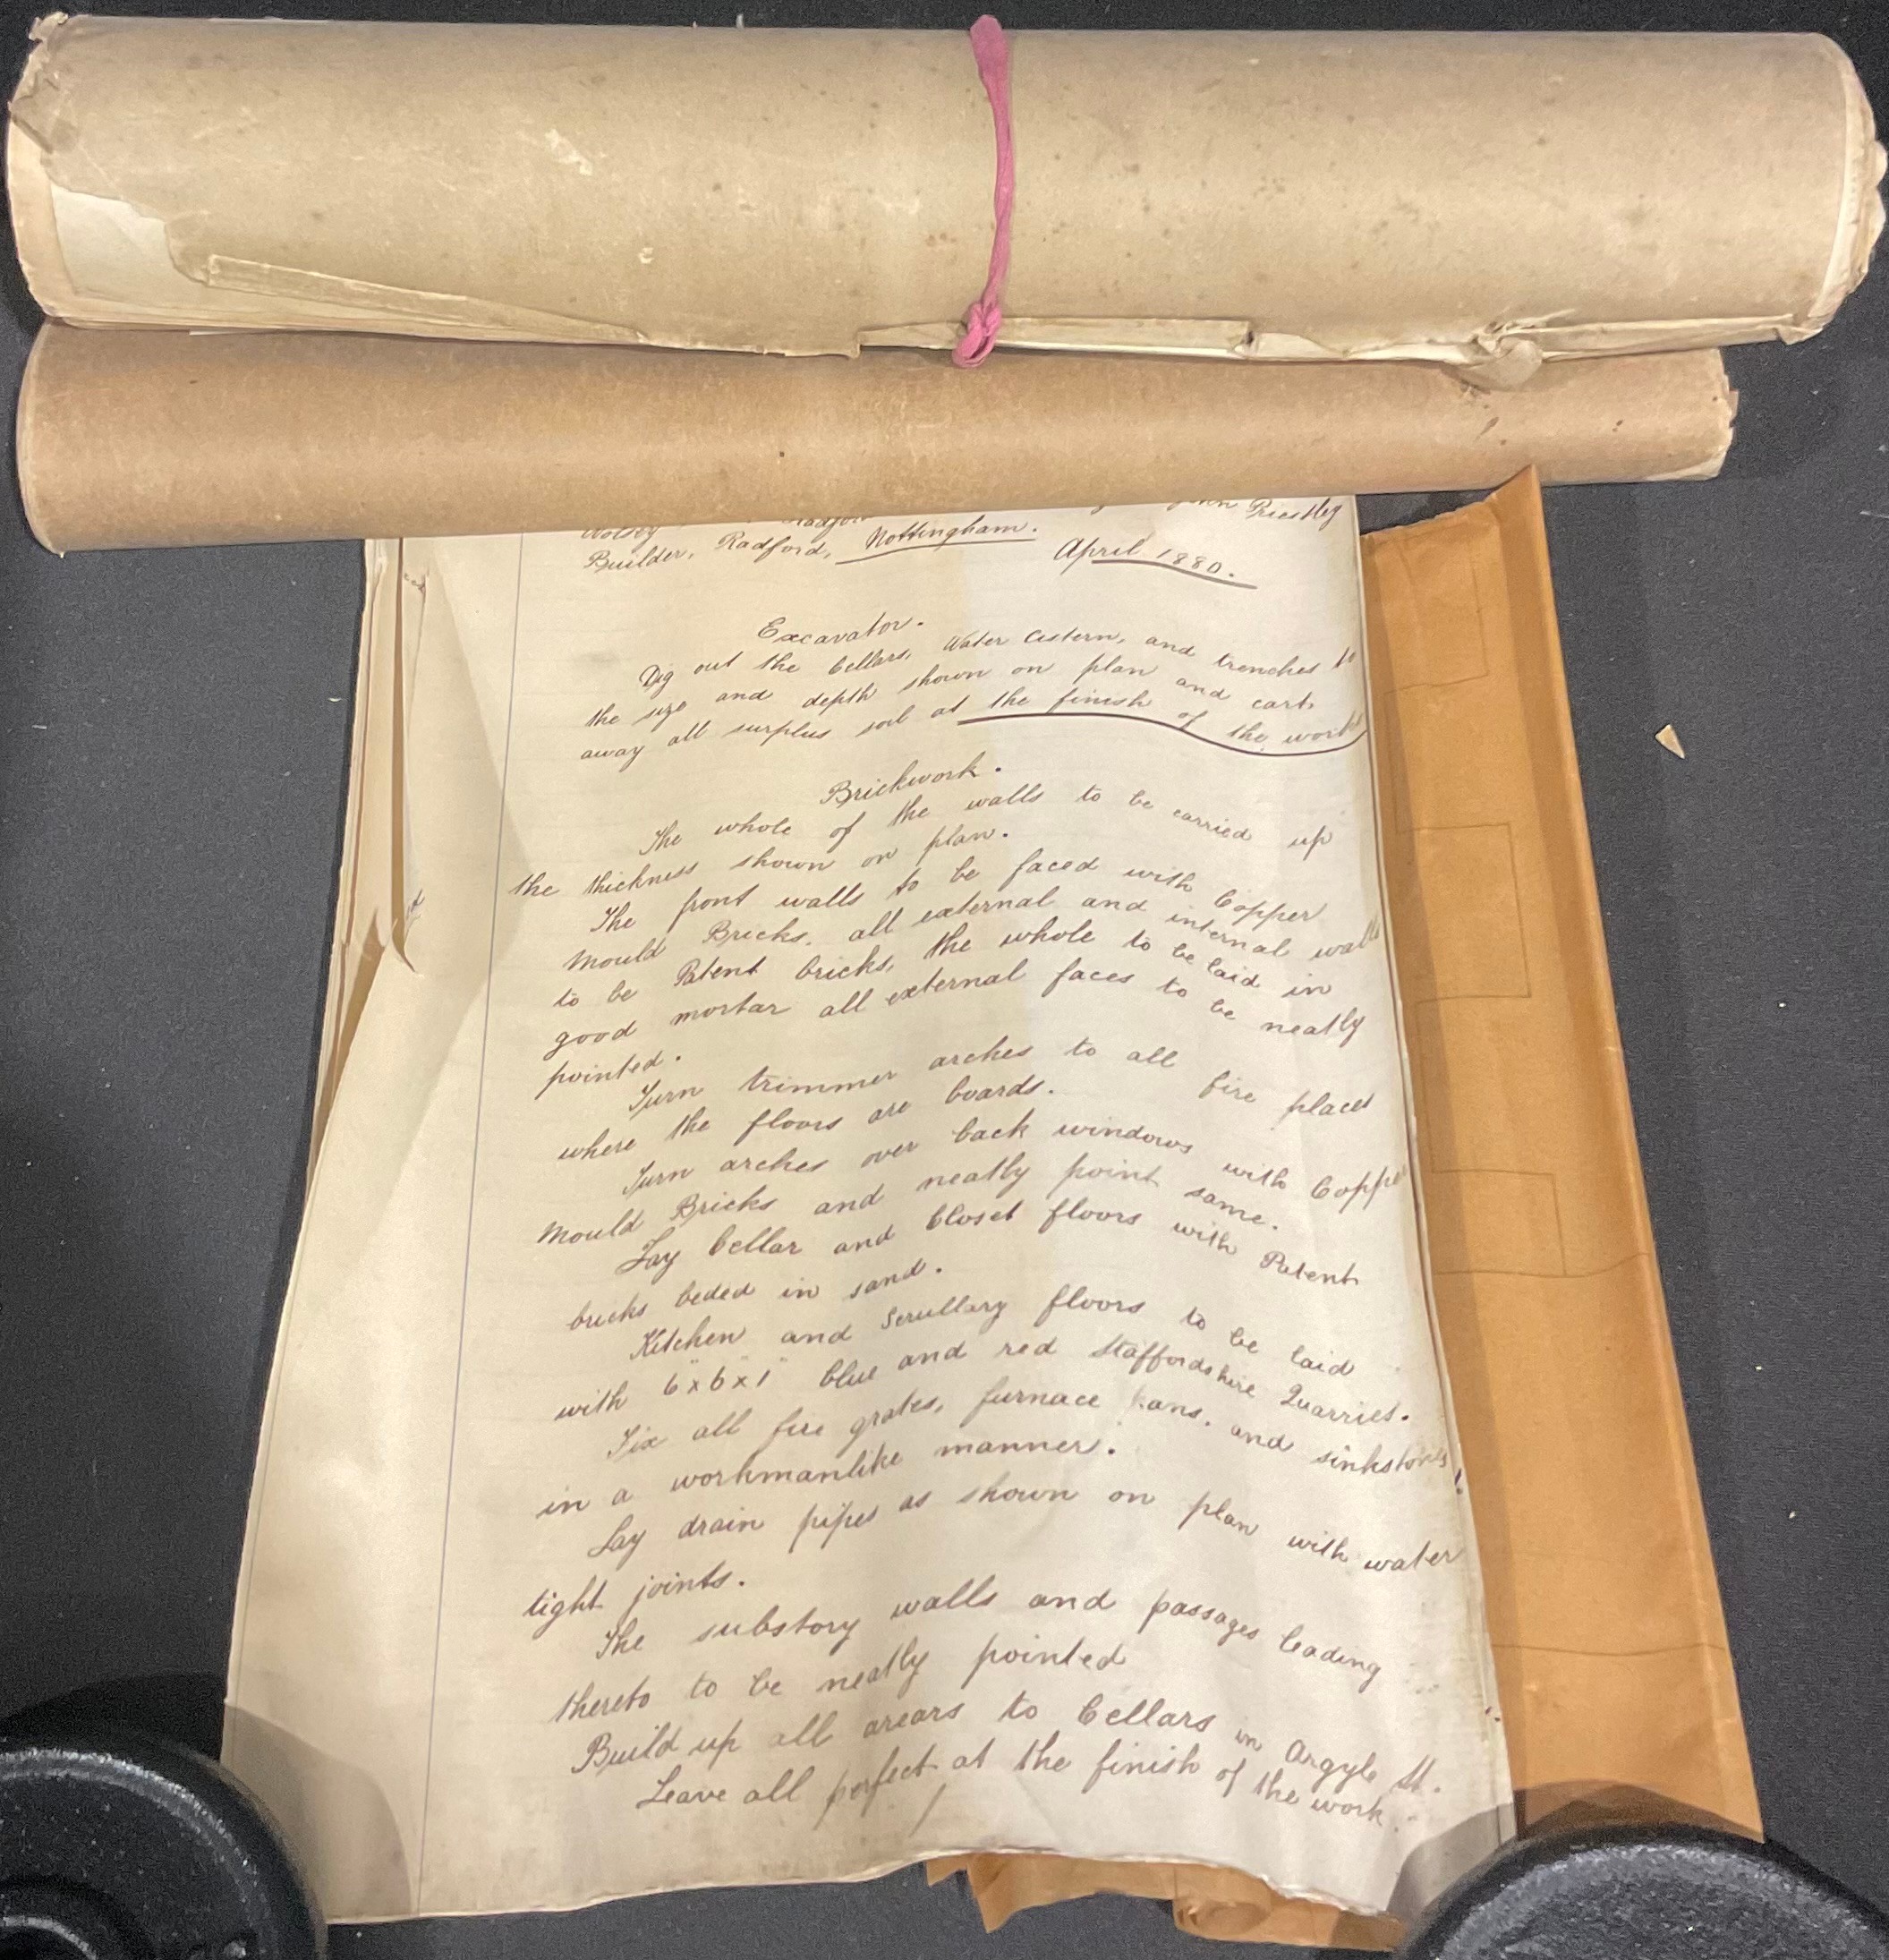 Priestley
Builder, Radford, Nottingham.
April 1880.
Excavator.
Dig out the Cellars, Water Cistern, and trenches to
the size and depth shown on plan and cart
away all surplus soil at the finish of the work
Brickwork.
The whole of the walls to be carried up
the thickness shown on plan.
The front walls to be faced with Copper
Mould Bricks, all external and internal walls
to be Patent bricks, the whole to be laid in
good mortar all external faces to be neatly
pointed.
Turn trimmer arches to all fire places
where the floors are boards.
Turn arches over back windows with Copper
Mould Bricks and neatly point same.
Lay Cellar and Closet floors with Patent
bricks beded in sand.
Kitchen and Scrullary floors to be laid
with 6"x6"x1" blue and red Staffordshire Quarries.
Fix all fire grates, furnace pans, and sinkstones
in a workmanlike manner.
Lay drain pipes as shown on plan with water
tight joints.
The substory walls and passages leading
thereto to be neatly pointed
Build up all arears to Cellars in Argyle St.
Leave all perfect at the finish of the work.